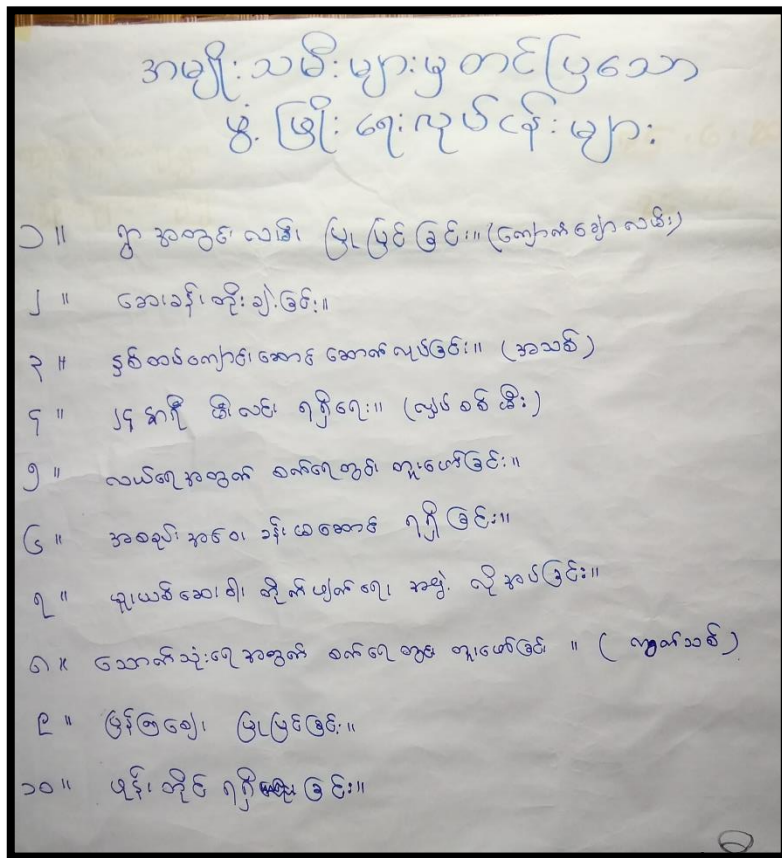 အမျိုးသမီးများမှ တင်ပြသော
ဖွံ့ဖြိုးရေးလုပ်ငန်းများ
၁။ ရွာအတွင်းလမ်း ပြုပြင်ခြင်း။ (ကျောက်ချောလမ်း)
၂။ ဆေးခန်းတိုးချဲ့ခြင်း။
၃။ နှစ်ထပ်ကျောင်းဆောင် ဆောက်လုပ်ခြင်း။ (အသစ်)
၄။ ၂၄ နာရီ မီးလင်း ရရှိရေး။ (လျှပ်စစ်မီး)
၅။ လယ်ရေအတွက် စက်ရေတွင်း တူးဖော်ခြင်း။
၆။ အစည်းအဝေး ခန်းမဆောင် ရရှိခြင်း။
၇။ မူးယစ်ဆေးဝါး တိုက်ဖျက်ရေး အဖွဲ့ လိုအပ်ခြင်း။
၈။ သောက်သုံးရေအတွက် စက်ရေတွင်း တူးဖော်ခြင်း။ (သစ်)
၉။ ပြုပြင်ခြင်း။
၁၀။ ဖုန်းတိုင် ရရှိခြင်း။